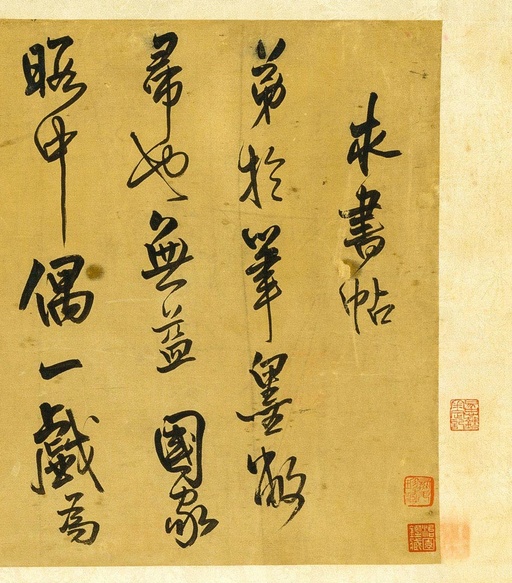 求書帖
弟於筆墨敝
帚也無益國家
暇中偶一戲為